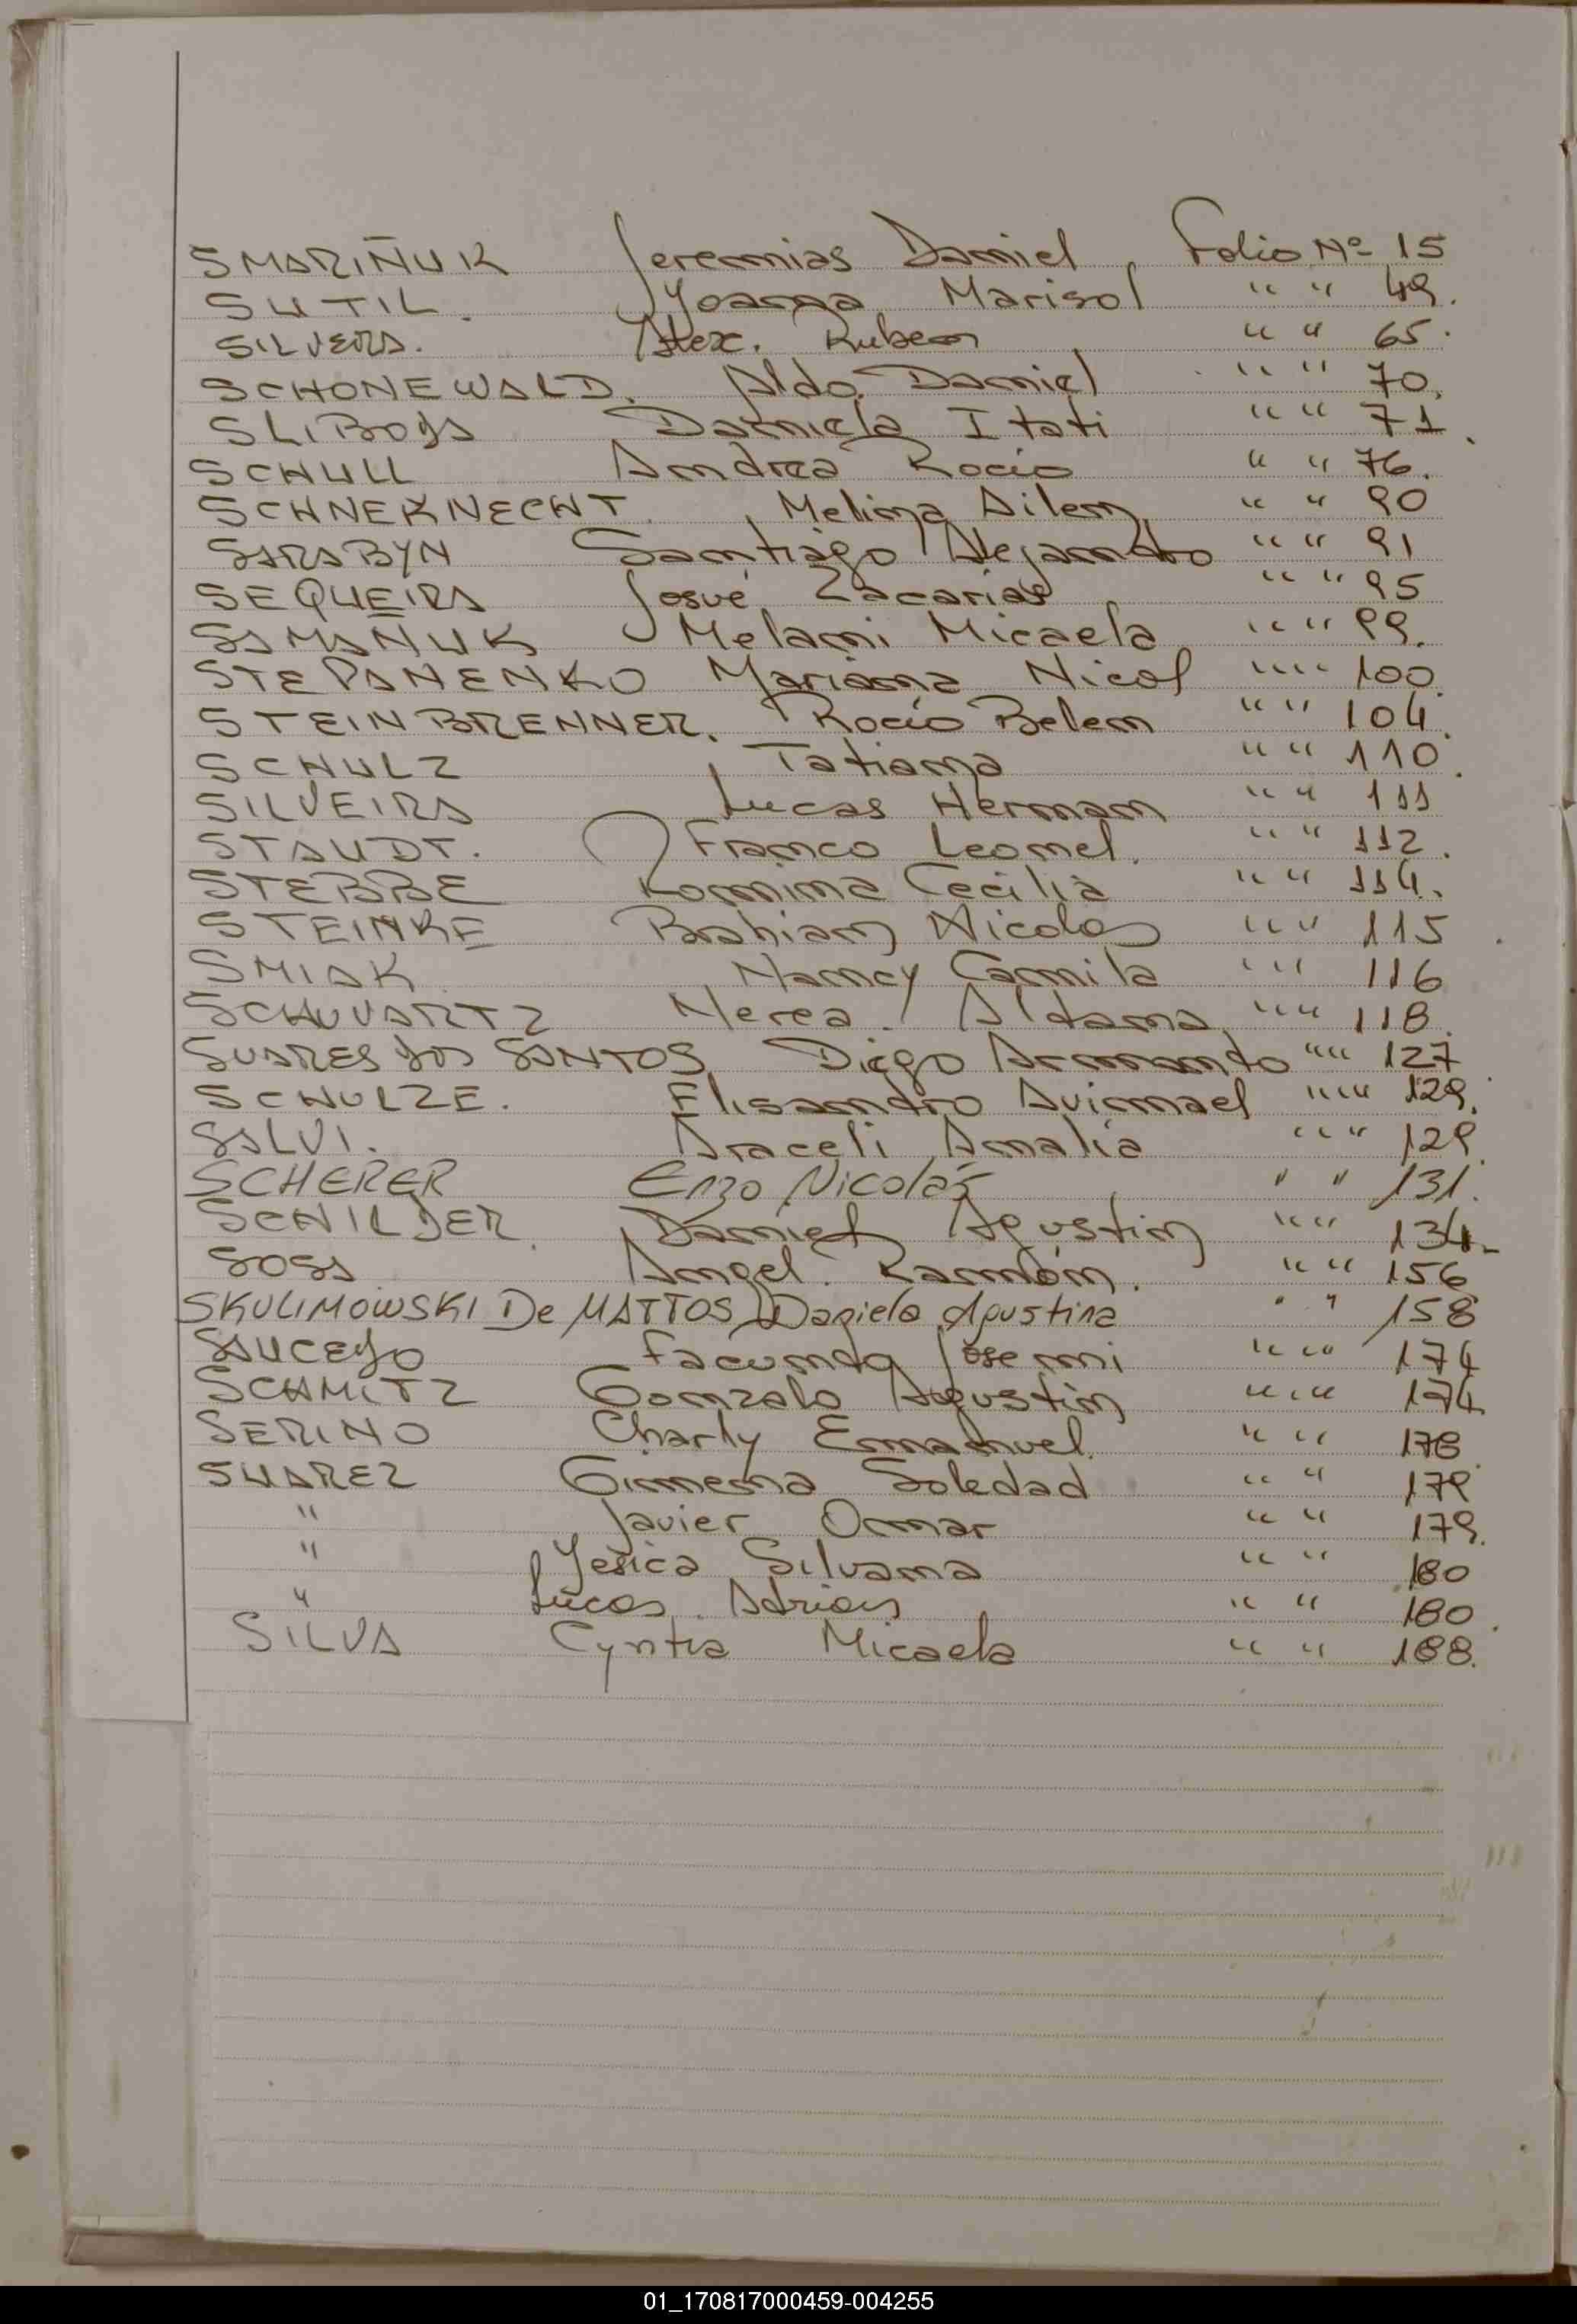 SMARIÑUK Jeremias Daniel Folio Nº 15
SUTIL. Yoanna Marisol " " 49.
SILVERA. Alex. Ruben " " 65.
SCHONEWALD. Aldo Daniel " " 70.
SLIBODA Daniela Itati " " 71.
SCHULL Andrea Rocio " " 76.
SCHNEKNECHT. Melina Ailen " " 90
SARABYN Santiago Alejandro " " 91
SEQUEIRA Josué Zacarias " " 95
SAMAÑUK Melani Micaela " " 99.
STEPANENKO Mariana Nicol " " 100.
STEINBRENNER. Rocio Belen " " 104.
SCHULZ Tatiana " " 110.
SILVEIRA Lucas Hernan " " 111
STAUDT. Franco Leonel. " " 112.
STEBBE Romina Cecilia " " 114.
STEINKE Brahian Nicolas " " 115.
SMIAK Nancy Camila " " 116
SCHUVARTZ Nerea. Aldana " " 118.
SUARES DOS SANTOS Diego Armando " " 127
SCHULZE. Elisandro Avimael " " 129.
SALVI. Araceli Analia " " 129.
SCHERER Enzo Nicolás " " 131.
SCHILDER. Daniel Agustin " " 134-
SOSA Angel. Ramón. " " 156
SKULIMOWSKI De MATTOS Daniela Agustina " " 158
SAUCEDO Facundo " " 174
SCHMITZ Gonzalo Agustin " " 174
SERINO Charly Emanuel. " " 178
SUAREZ Gimena Soledad " " 179
" Javier Omar " " 179.
" Yesica Silvana " " 180
" Lucas. Adrian " " 180.
SILVA Cyntia Micaela " " 188.
01_170817000459-004255